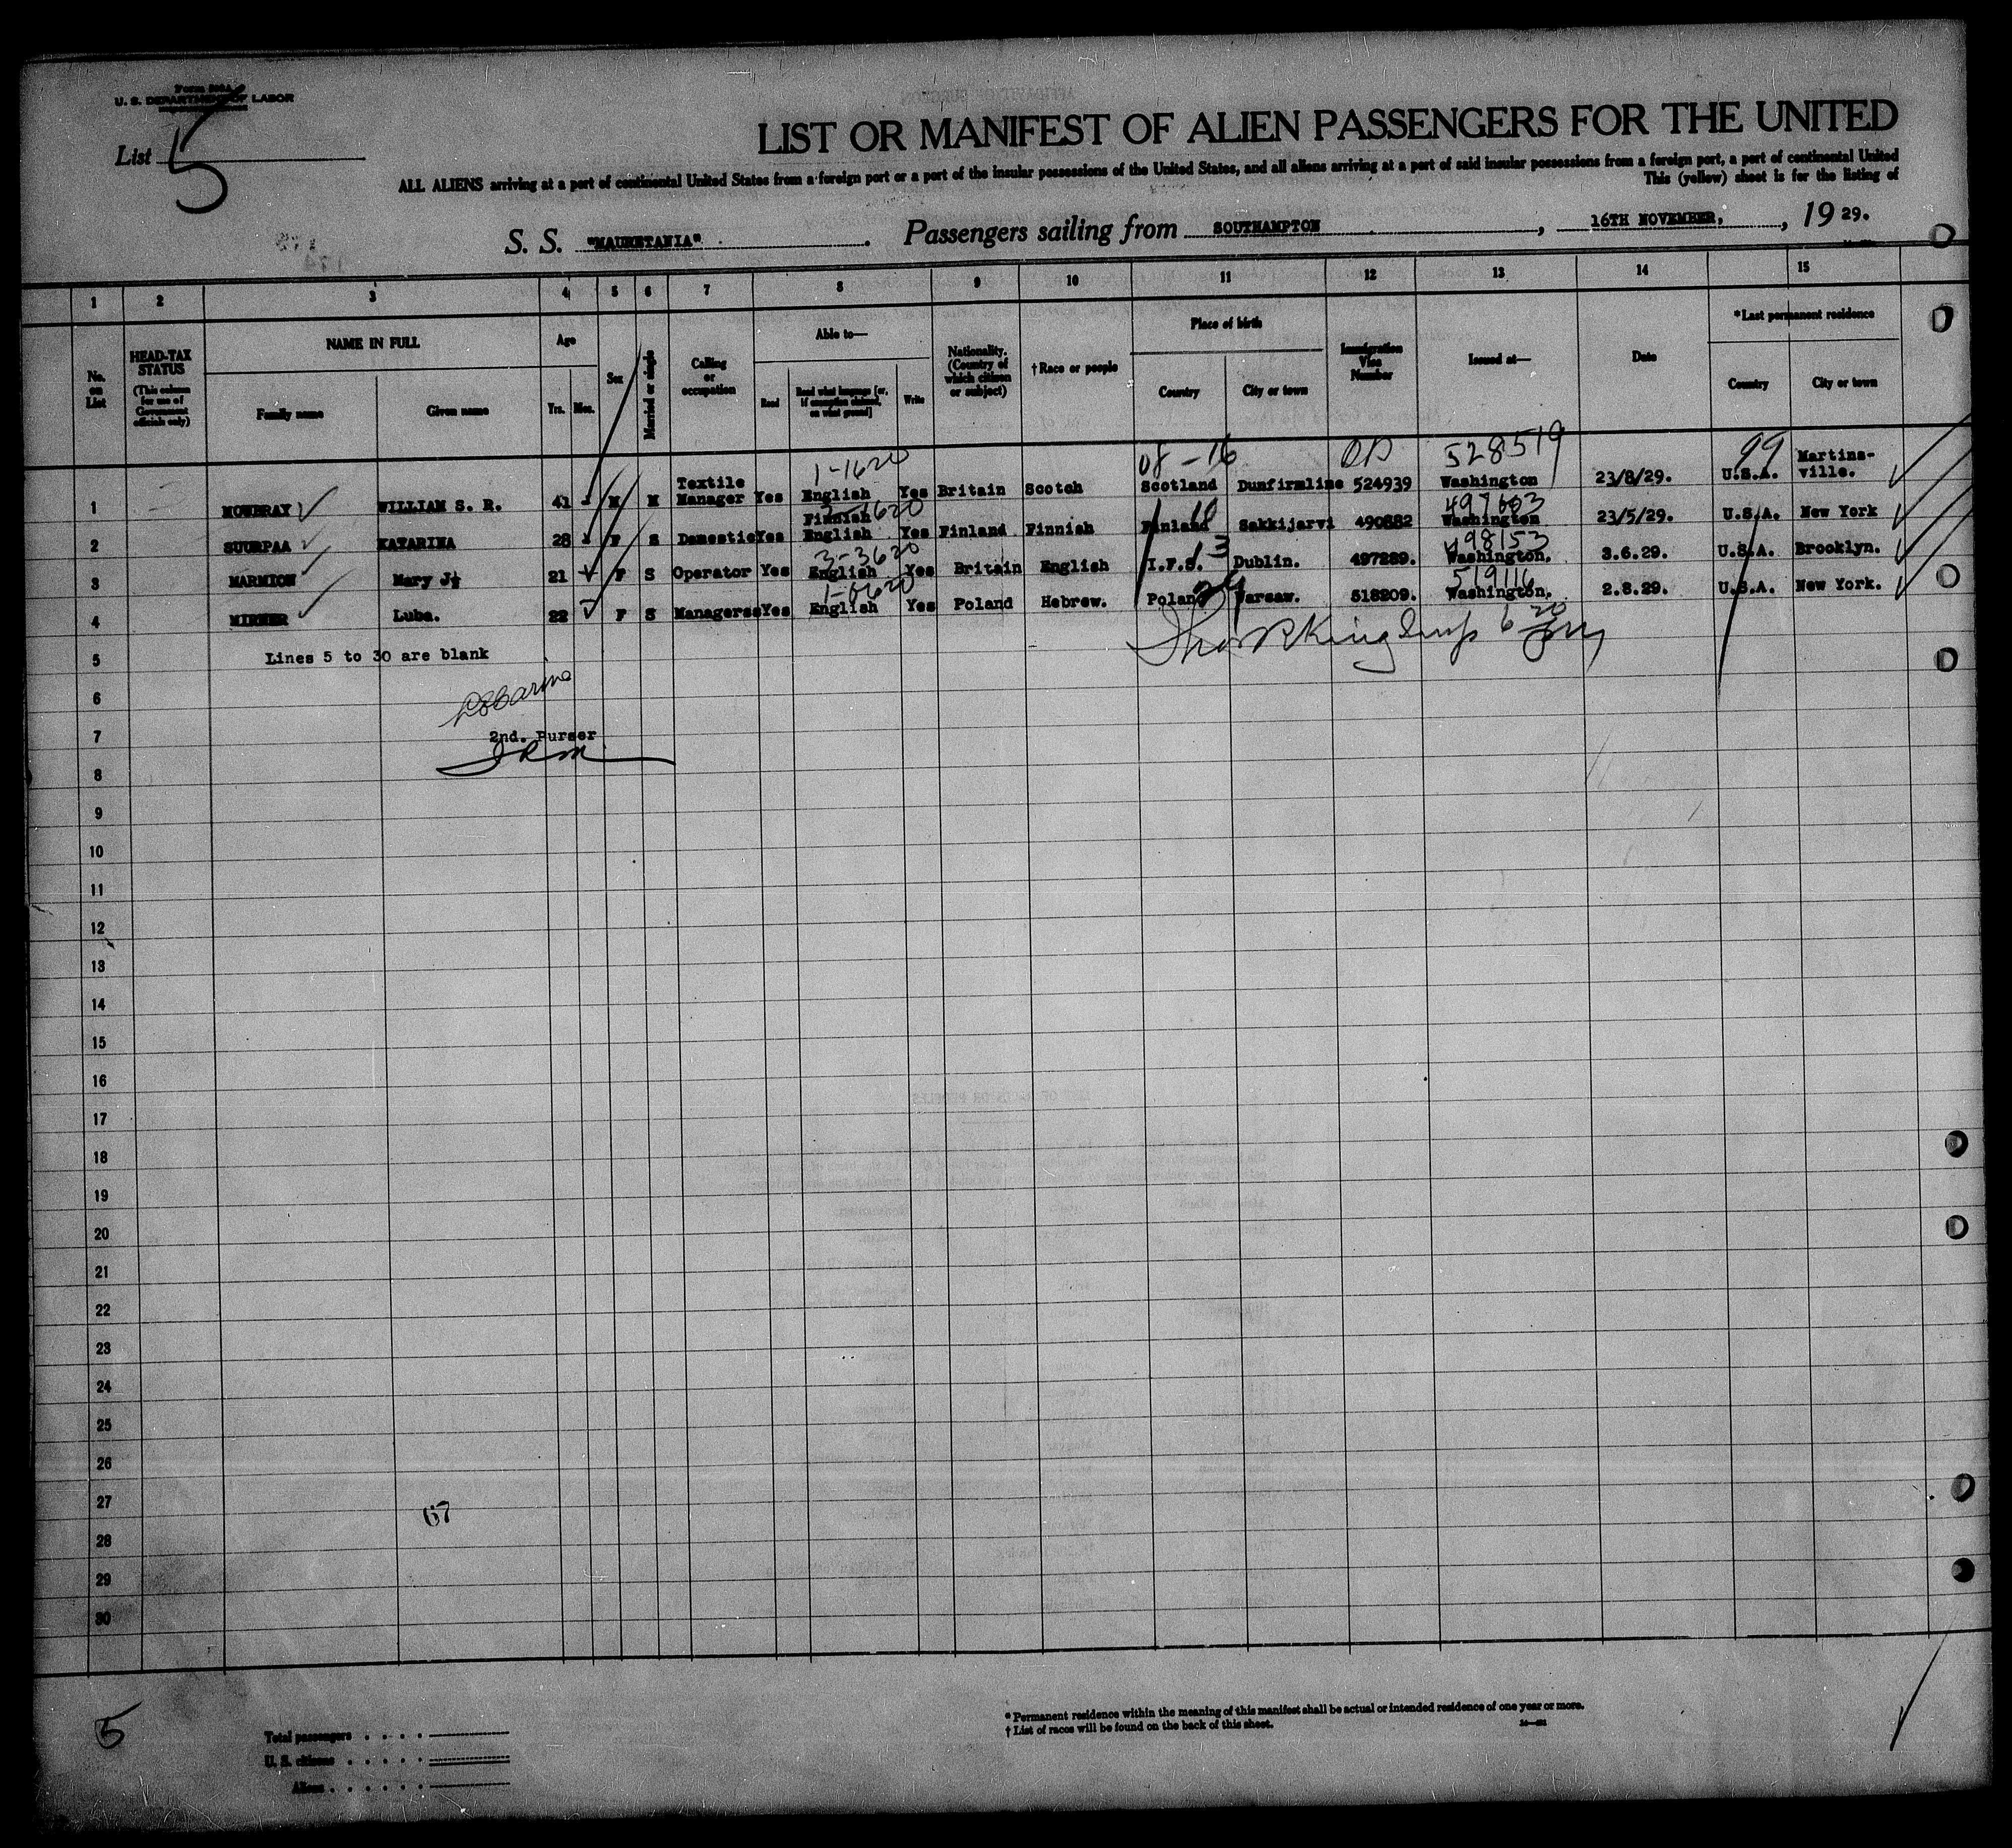 Form 500A
U. S. DEPARTMENT OF LABOR
List 5
LIST OR MANIFEST OF ALIEN PASSENGERS FOR THE UNITED
ALL ALIENS arriving at a port of continental United States from a foreign port or a port of the insular possessions of the United States, and all aliens arriving at a port of said insular possessions from a foreign port, a port of continental United
This (yellow) sheet is for the listing of
S. S. "MAURETANIA". Passengers sailing from SOUTHAMPTON, 16TH NOVEMBER, , 19 29.
1 2 3 4 5 6 7 8 9 10 11 12 13 14 15
No. on List
HEAD-TAX STATUS (This column for use of Government officials only)
NAME IN FULL
Family name Given name
Age
Yrs. Mos.
Sex
Married or single
Calling or occupation
Able to—
Read Read what language [or, if exemption claimed, on what ground] Write
Nationality. (Country of which citizen or subject)
†Race or people
Place of birth
Country City or town
Immigration Visa Number
Issued at—
Date
*Last permanent residence
Country City or town
1-1620 08-16 528519 99
1 MOWBRAY WILLIAM S. R. 41 M M Textile Manager Yes English Yes Britain Scotch Scotland Dunfirmline 524939 Washington 23/8/29. U.S.A. Martins-ville.
2 SUURPAA KATARINA 28 F S Domestic Yes Finnish English Yes Finland Finnish Finland Sakkijarvi 490882 Washington 23/5/29. U.S.A. New York
3-3620 498153
3 MARMION Mary J. 21 F S Operator Yes English Yes Britain English I.F.S. Dublin. 497289. Washington. 3.6.29. U.S.A. Brooklyn.
519116
4 MIRNER Luba. 22 F S Manageress Yes English Yes Poland Hebrew. Poland Warsaw. 518209. Washington. 2.8.29. U.S.A. New York.
5 Lines 5 to 30 are blank
6
7 2nd. Purser
8
9
10
11
12
13
14
15
16
17
18
19
20
21
22
23
24
25
26
27
67
28
29
30
5
Total passengers
U. S. citizens
Aliens
* Permanent residence within the meaning of this manifest shall be actual or intended residence of one year or more.
† List of races will be found on the back of this sheet.